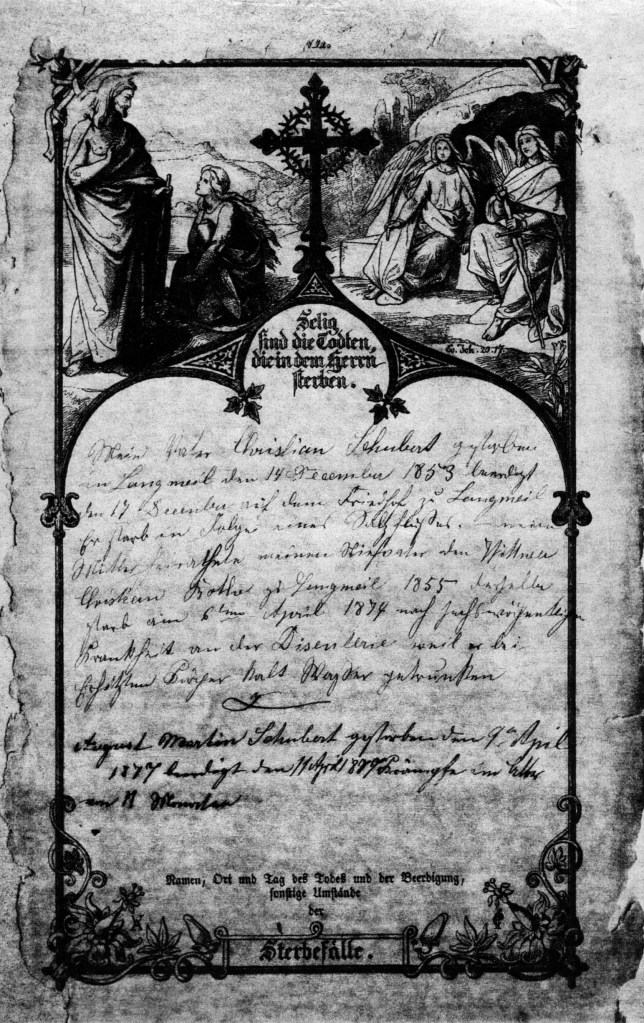 Selig
sind die Todten,
die in dem Herrn
sterben.
Ev. Joh. 20. 17.
Mein Vater Christian Schubert gestorben
in Langmeil den 14 December 1853 beerdigt
den 17 December auf dem Friedhof zu Langmeil
Er starb in Folge eines meine
Mutter heirathete meinen Stiefvater den Wittwer
Christian zu Langmeil 1855 derselbe
starb am 6ten April 1874 nach sechswöchentlicher
Krankheit an der Disenterie weil er bei
erhitzten Körper kalt Wasser getrunken
August Martin Schubert gestorben den 9ten April
1877 beerdigt den 11 April Krämpfe im Alter
von 11 Monaten
Namen, Ort und Tag des Todes und der Beerdigung,
sonstige Umstände
der
Sterbefälle.